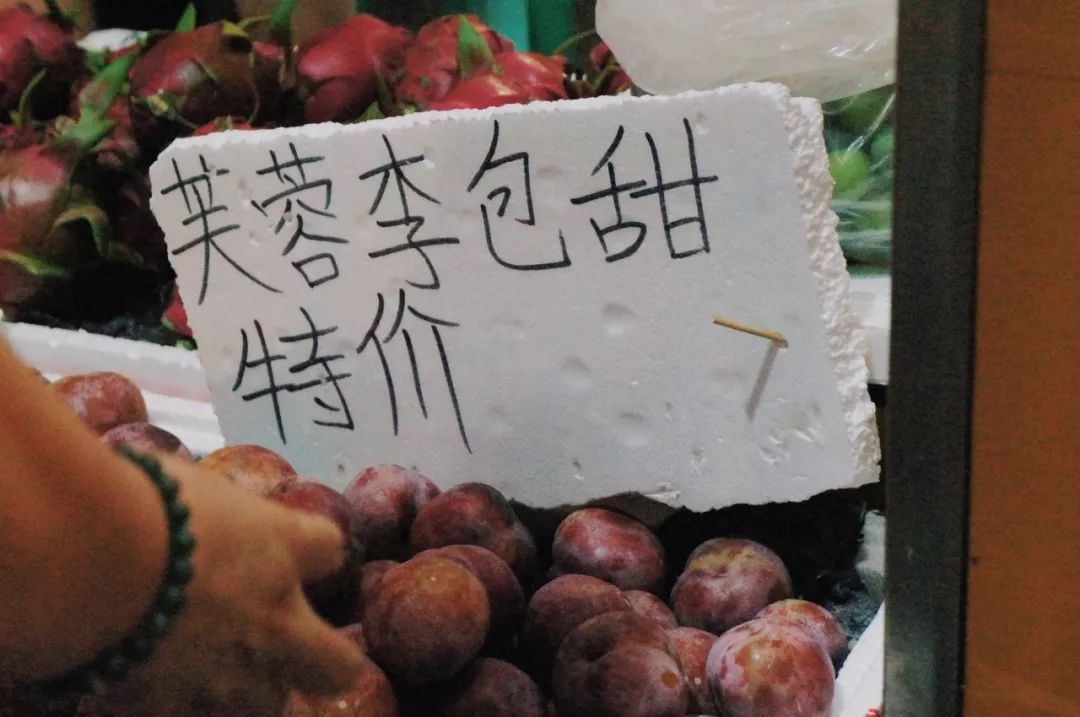 芙蓉李包甜
特价